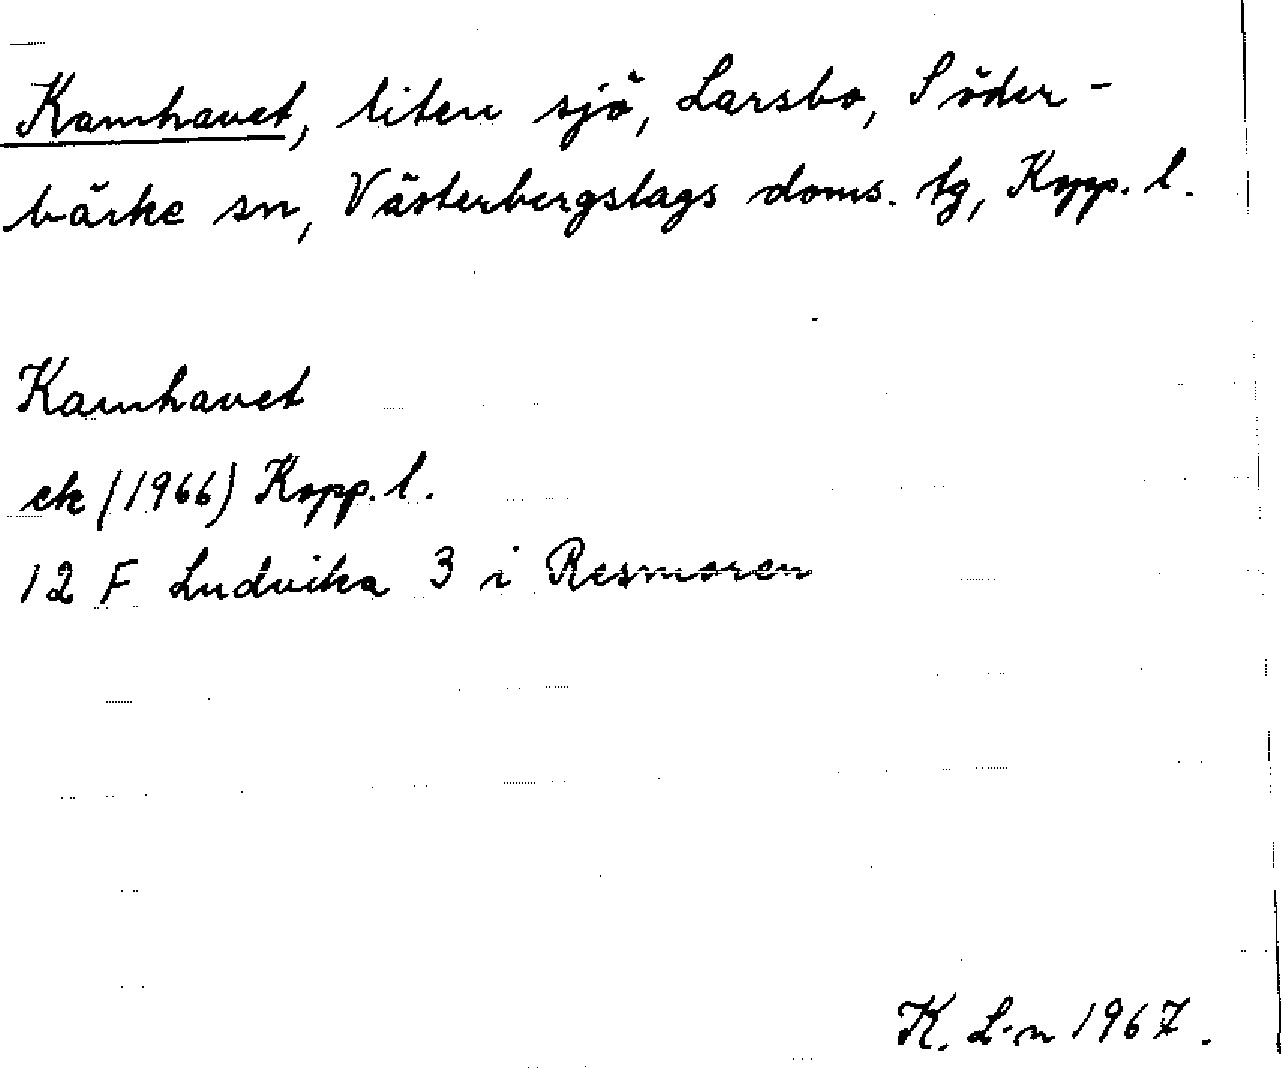 Kamhavet, liten sjö, Larsbo, Söder-
bärke sn, Västerbergslags doms. tg, Kopp. l.
Kamhavet
ek (1966) Kopp. l.
12 F Ludvika 3 i Resmoren
K. L-n 1967.